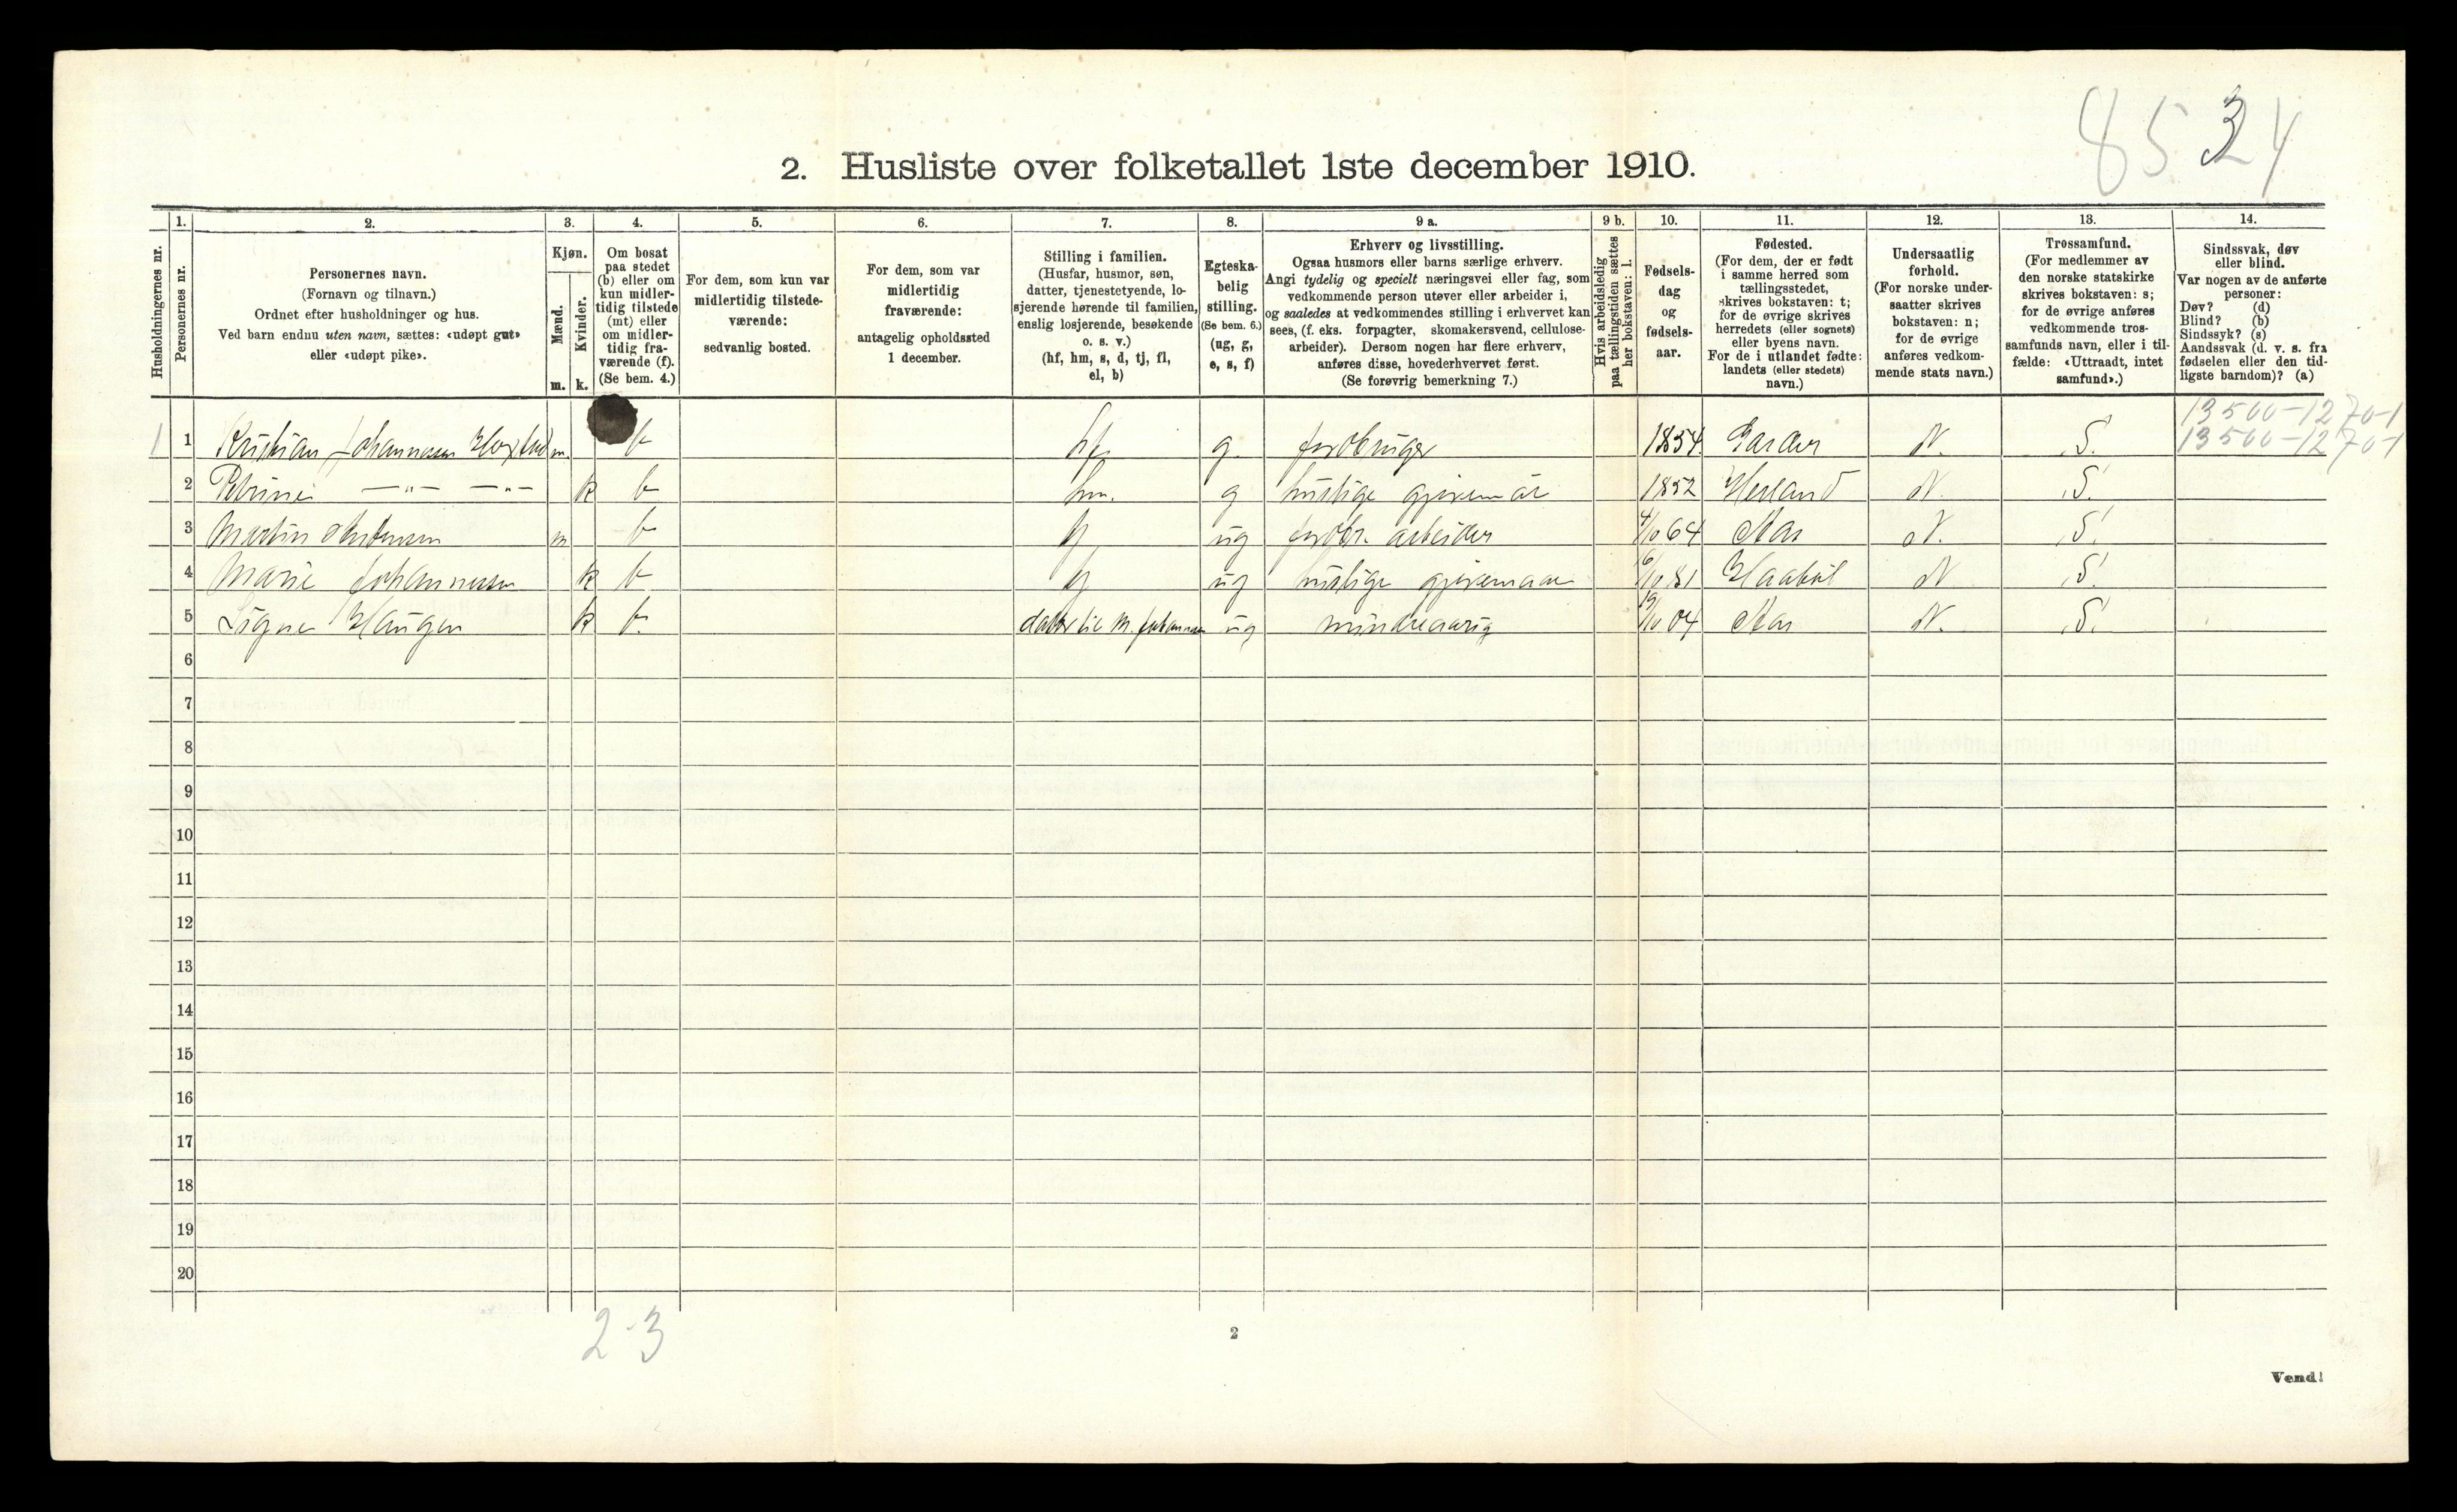 8534
2. Husliste over folketallet 1ste december 1910.
Husholdningernes nr.
1.
Personernes nr.
2.
Personernes navn.
(Fornavn og tilnavn.)
Ordnet efter husholdninger og hus.
Ved barn endnu uten navn, sættes: «udøpt gut»
eller «udøpt pike».
3.
Kjøn.
Mænd.
Kvinder.
m. k.
4.
Om bosat
paa stedet
(b) eller om
kun midler-
tidig tilstede
(mt) eller
om midler-
tidig fra-
værende (f).
(Se bem. 4.)
5.
For dem, som kun var
midlertidig tilstede-
værende:
sedvanlig bosted.
6.
For dem, som var
midlertidig
fraværende:
antagelig opholdssted
1 december.
7.
Stilling i familien.
(Husfar, husmor, søn,
datter, tjenestetyende, lo-
sjerende hørende til familien,
enslig losjerende, besøkende
o. s. v.)
(hf, hm, s, d, tj, fl,
el, b)
8.
Egteska-
belig
stilling.
(Se bem. 6.)
(ug, g,
e, s, f)
9 a.
Erhverv og livsstilling.
Ogsaa husmors eller barns særlige erhverv.
Angi tydelig og specielt næringsvei eller fag, som
vedkommende person utøver eller arbeider i,
og saaledes at vedkommendes stilling i erhvervet kan
sees, (f. eks. forpagter, skomakersvend, cellulose-
arbeider). Dersom nogen har flere erhverv,
anføres disse, hovederhvervet først.
(Se forøvrig bemerkning 7.)
9 b.
Hvis arbeidsledig
paa tællingstiden sættes
her bokstaven: l.
10.
Fødsels-
dag
og
fødsels-
aar.
11.
Fødested.
(For dem, der er født
i samme herred som
tællingsstedet,
skrives bokstaven: t;
for de øvrige skrives
herredets (eller sognets)
eller byens navn.
For de i utlandet fødte:
landets (eller stedets)
navn.)
12.
Undersaatlig
forhold.
(For norske under-
saatter skrives
bokstaven: n;
for de øvrige
anføres vedkom-
mende stats navn.)
13.
Trossamfund.
(For medlemmer av
den norske statskirke
skrives bokstaven: s;
for de øvrige anføres
vedkommende tros-
samfunds navn, eller i til-
fælde: «Uttraadt, intet
samfund».)
14.
Sindssvak, døv
eller blind.
Var nogen av de anførte
personer:
Døv? (d)
Blind? (b)
Sindssyk? (s)
Aandssvak (d. v. s. fra
fødselen eller den tid-
ligste barndom)? (a)
13500-1270-1
1 1 Kristian Johannesen m. b hf g. jordbruger 1854. Garder N. S. 13500-1270-1
2 Petrine —"— —"— k b hm. g huslige 1852 N. S.
3 Martin m b tj ug jordbr. arbeider 4/10 64 Aas N. S.
4 Marie Johannessen k b tj ug huslige 6/10 81 Haabøl N S.
5 Signe Haugen k b. datter til M. Johannesen ug mindreaarig 19/10 04 Aas N. S.
6
7
8
9
10
11
12
13
14
15
16
17
18
19
20
2-3
2
Vend!